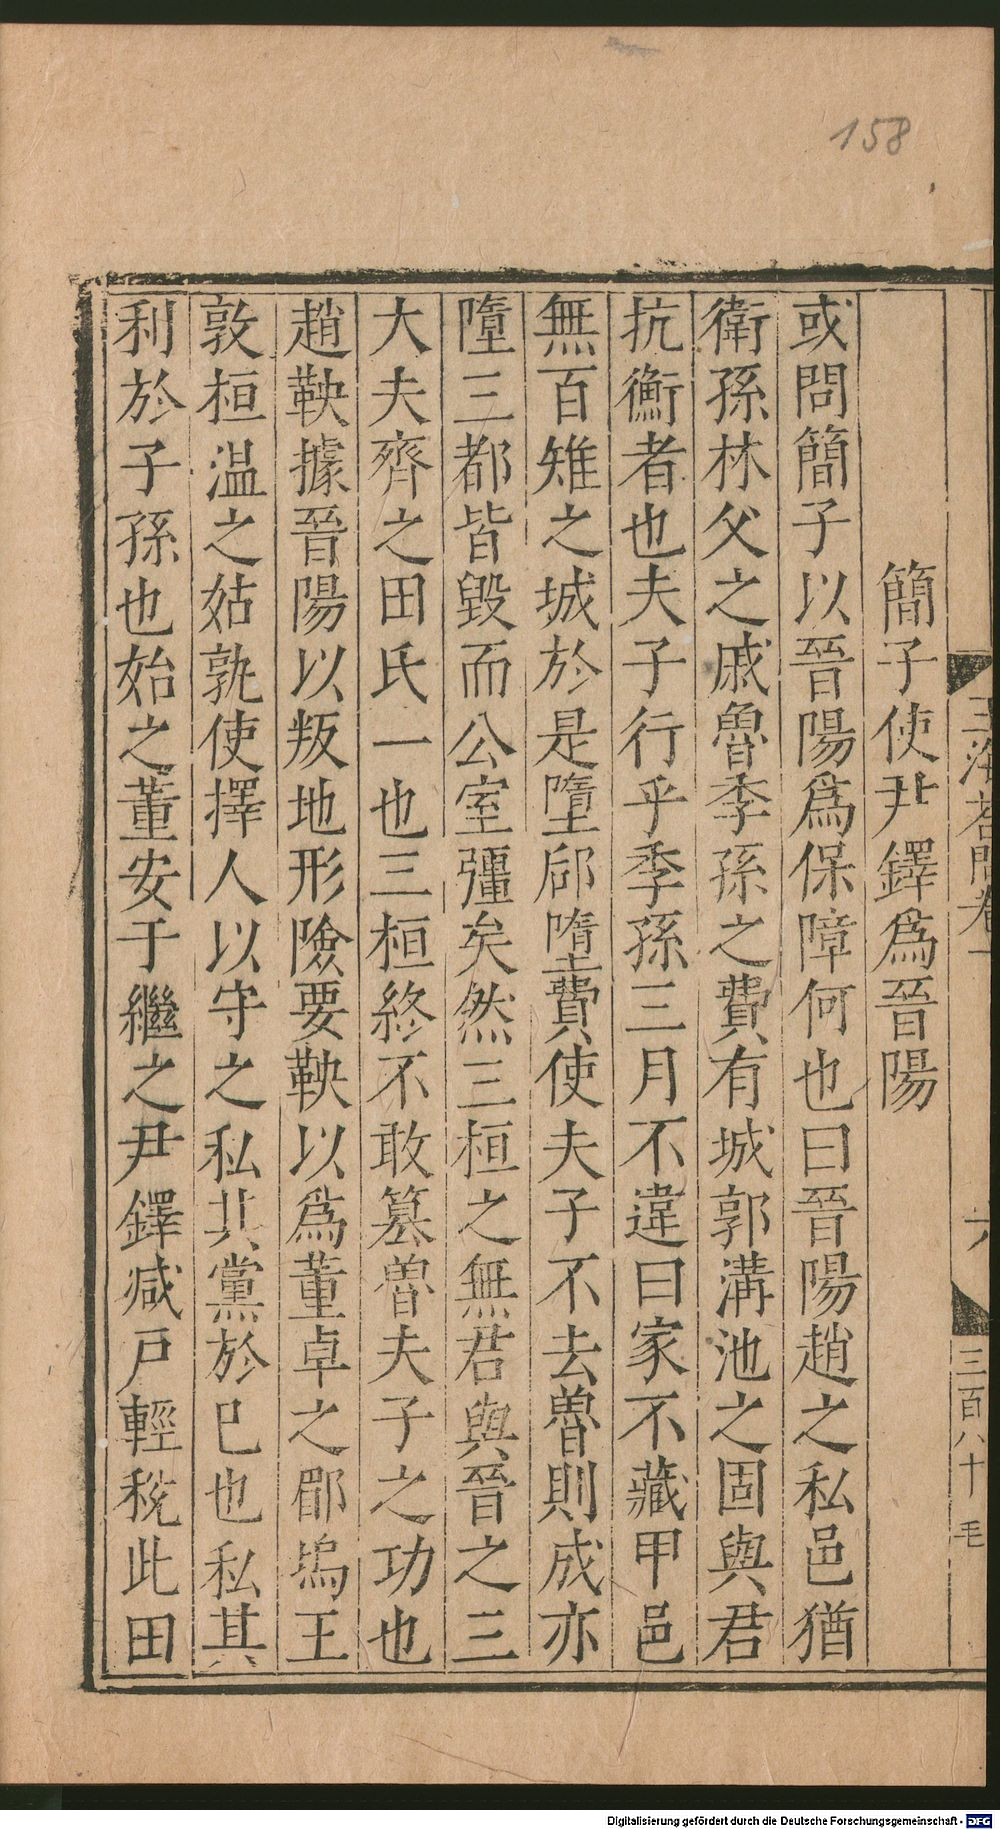 158
三海答問卷一
六
三百八十 毛
簡子使尹鐸爲晉陽
或問簡子以晉陽爲保障何也曰晉陽趙之私邑猶
衛孫林父之戚魯季孫之費有城郭溝池之固與君
抗衡者也夫子行乎季孫三月不違曰家不藏甲邑
無百雉之城於是墮郈墮費使夫子不去魯則成亦
墮三都皆毀而公室彊矣然三桓之無君與晉之三
大夫齊之田氏一也三桓終不敢簒魯夫子之功也
趙鞅據晉陽以叛地形險要鞅以爲董卓之郿塢王
敦桓温之姑孰使擇人以守之私其黨於已也私其
利於子孫也始之董安于繼之尹鐸减戸輕稅此田
Digitalisierung gefördert durch die Deutsche Forschungsgemeinschaft - DFG